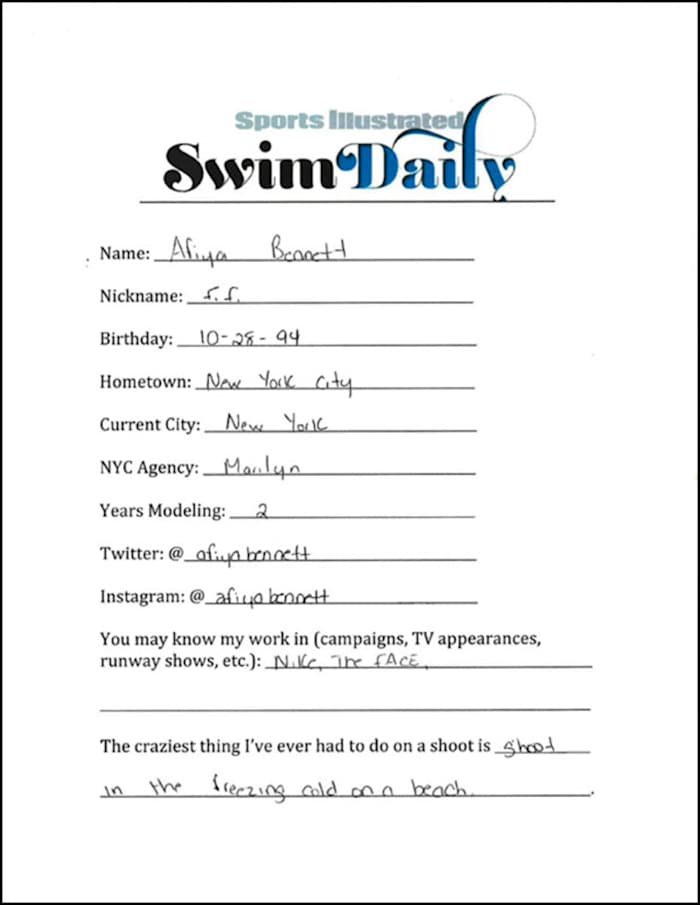 Sports Illustrated
Swim Daily
Name: Afiya Bennett
Nickname: f.f.
Birthday: 10-28-94
Hometown: New York City
Current City: New York
NYC Agency: Marilyn
Years Modeling: 2
Twitter: @ afiyabennett
Instagram: @ afiyabennett
You may know my work in (campaigns, TV appearances,
runway shows, etc.): Nike, The FACE,
The craziest thing I've ever had to do on a shoot is shoot
in the freezing cold on a beach.